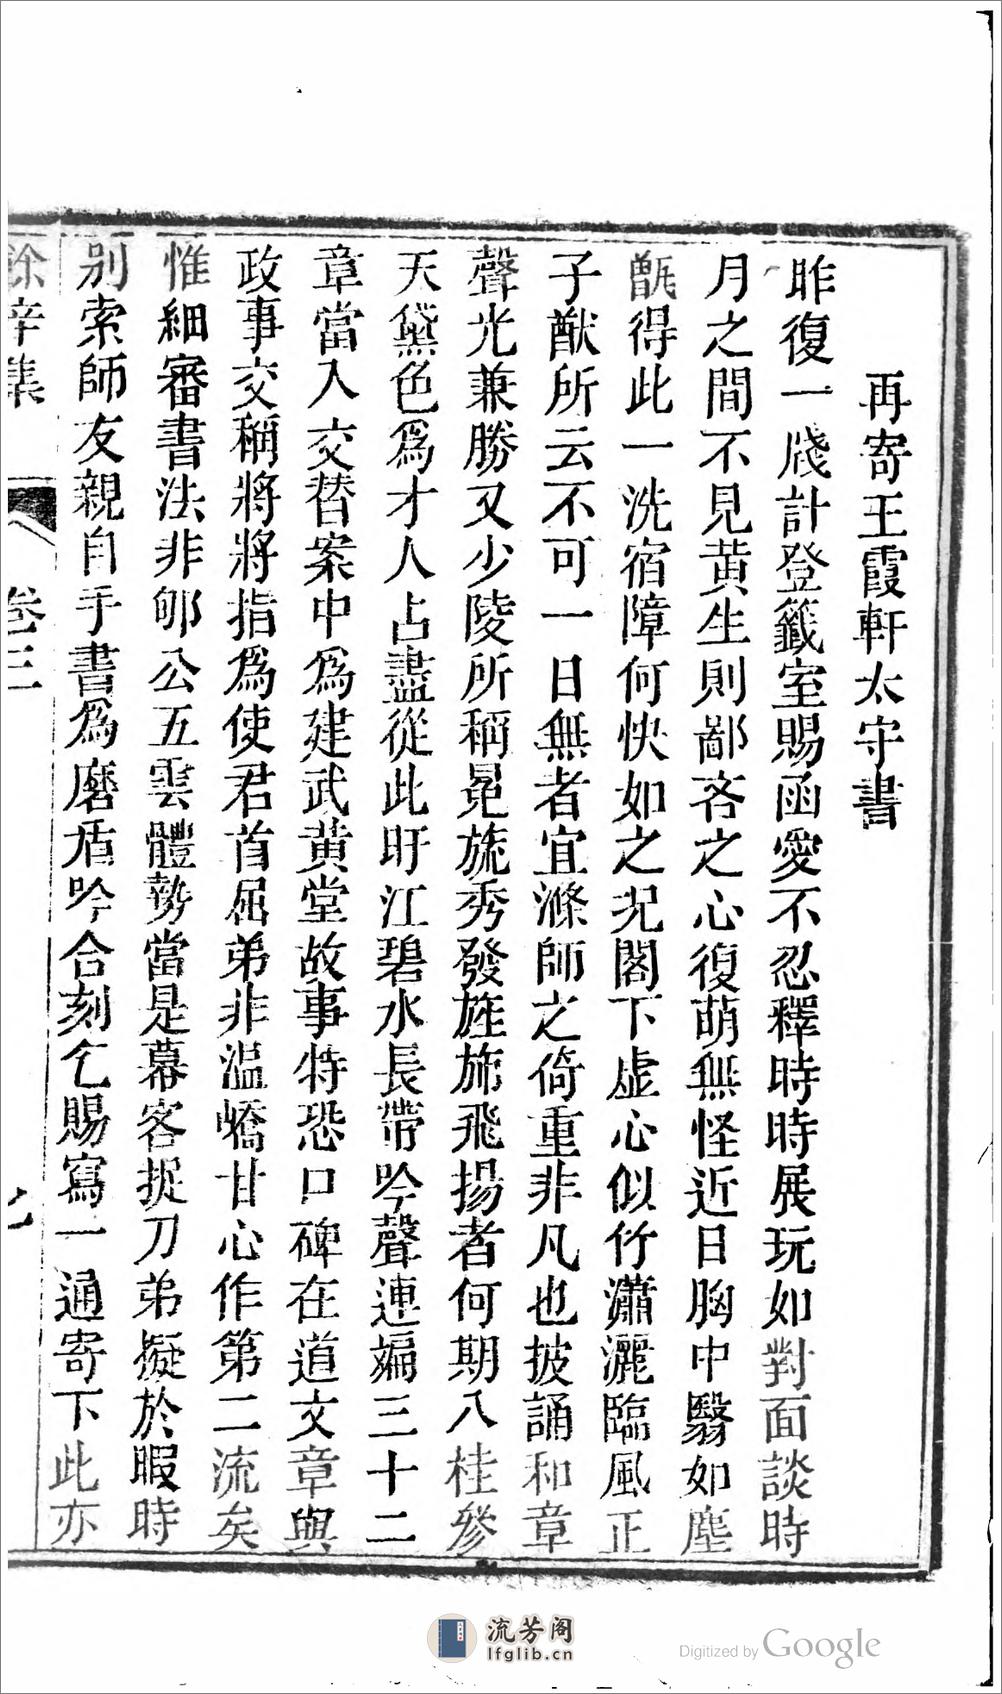 再寄王霞軒太守書
昨復一牋計登籤室賜函愛不忍釋時時展玩如對面談時
月之間不見黃生則鄙吝之心復萌無怪近日胸中翳如塵
甑得此一洗宿障何快如之況閣下虛心似竹瀟灑臨風正
子猷所云不可一日無者宜滌師之倚重非凡也披誦和章
聲光兼勝又少陵所稱冕旒秀發旌旆飛揚者何期八桂參
天黛色爲才人占盡從此盱江碧水長帶吟聲連編三十二
章當入交替案中爲建武黃堂故事特恐口碑在道文章與
政事交稱將將指爲使君首屈弟非溫嶠甘心作第二流矣
惟細審書法非郇公五雲體勢當是幕客捉刀弟擬於暇時
別索師友親自手書爲磨盾吟合刻乞賜寫一通寄下此亦
餘辛集
卷三
流芳阁
lfglib.cn
Digitized by Google